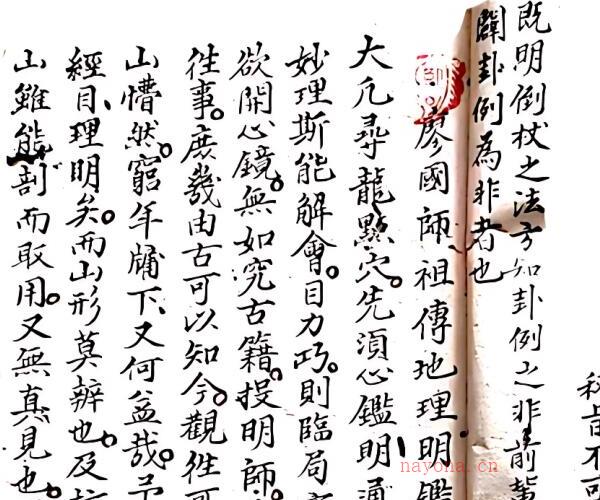 既明倒杖之法方知卦例之非前輩
闢卦例為非者也
廖國師祖傳地理明鑑
大凡尋龍點穴。先須心鑑明通
妙理斯能解會。目力巧。則臨局
欲開心鏡。無如究古籍。投明師。
往事。庶幾由古可以知今。觀徃可
山懵然。窮年牖下。又何益哉。予
經目、理明矣。而山形莫辨也。及
山雖能剖而取用。又無真見也。
nayona.cn